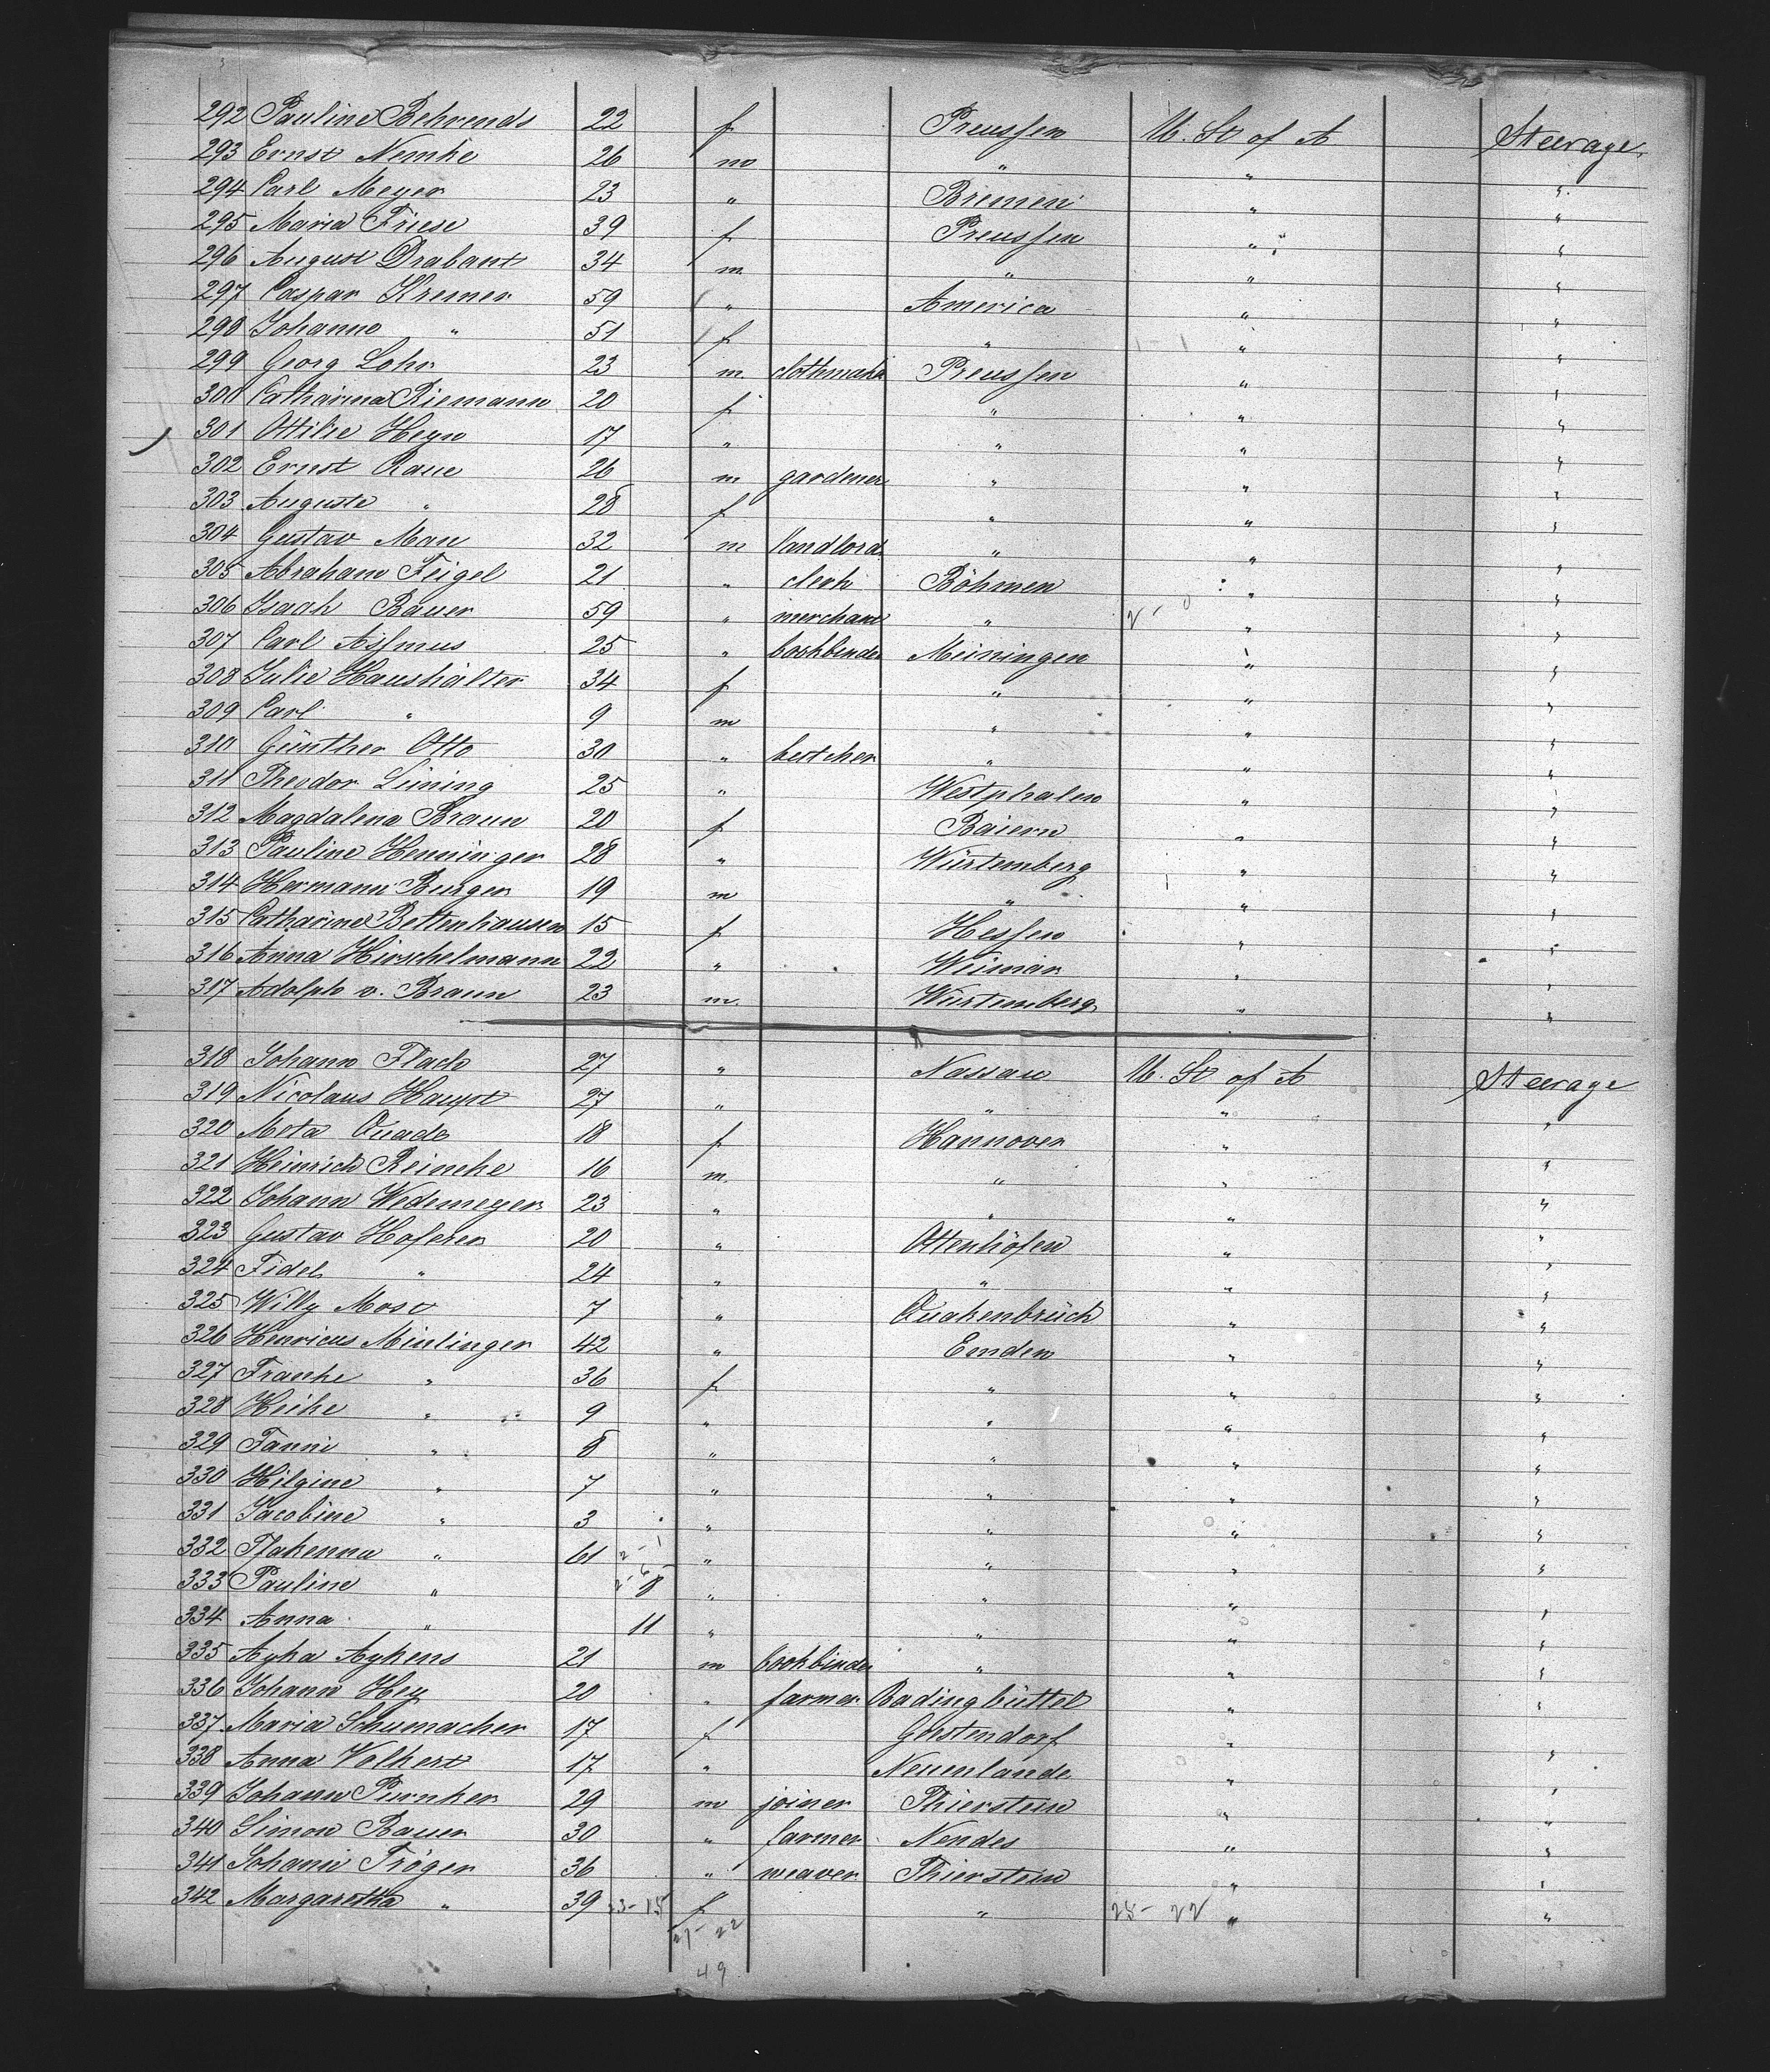 292 Pauline Behrends 22 f Preussen U. St of A Steerage
293 Ernst Nemke 26 m " " "
294 Carl Meyer 23 " Bremen " "
295 Maria Friese 39 f Preussen " "
296 August Drabant 34 m " " "
297 Caspar Kremer 59 " America " "
298 Johanne " 51 f " " "
299 Georg Lohr 23 m clothmaker Preussen " "
300 Catharina Riemann 20 f " " "
301 Ottilie Heyn 17 " " " "
302 Ernst Raue 26 m gardener " " "
303 Auguste " 28 f " " "
304 Gustav Mau 32 m landlord " " "
305 Abraham Feigel 21 " clerk Böhmen " "
306 Isaak Bauer 59 " merchant " " "
307 Carl Assmus 25 " bookbinder Meiningen " "
308 Julie Haushälter 34 f " " "
309 Carl " 9 m " " "
310 Günther Otto 30 " " " "
311 Theodor Lüning 25 " Westphalen " "
312 Magdalena Braun 20 f Baiern " "
313 Pauline Henninger 28 " Würtemberg " "
314 Hermann Burger 19 m " " "
315 Catharine Bettenhausen 15 f Hessen " "
316 Anna Hirschelmann 22 " Weimar " "
317 Adolph v. Braun 23 m Würtemberg " "
318 Johann Flach 27 " Nassau U. St of A Steerage
319 Nicolaus Haupt 27 " " " "
320 Meta Quade 18 f Hannover " "
321 Heinrich Reineke 16 m " " "
322 Johann Wedemeyer 23 " " " "
323 Gustav Hoferer 20 " Ottenhöfen " "
324 Fidel " 24 " " " "
325 Willy Most 7 " Quakenbrück " "
326 Henricus Minlinger 42 " Emden " "
327 Frauke " 36 f " " "
328 Heike " 9 " " " "
329 Fanni " 8 " " " "
330 Hilgine " 7 " " " "
331 Jacobine " 3 " " " "
332 " 61 " " " "
333 Pauline " 8 " " " "
334 Anna " 11 " " " "
335 Ayka Aykens 21 m bookbinder " " "
336 Johann Hey 20 " farmer Padingbüttel " "
337 Maria Schumacher 17 f Geestendorf " "
338 Anna Volkert 17 " Neuenlande " "
339 Johann Purnker 29 m joiner Thierstein " "
340 Simon Bauer 30 " farmer Nendes " "
341 Johann Tröger 36 " weaver Thierstein " "
342 Margaretha " 39 23-15 f " 25- 22 " "
27- 22
49